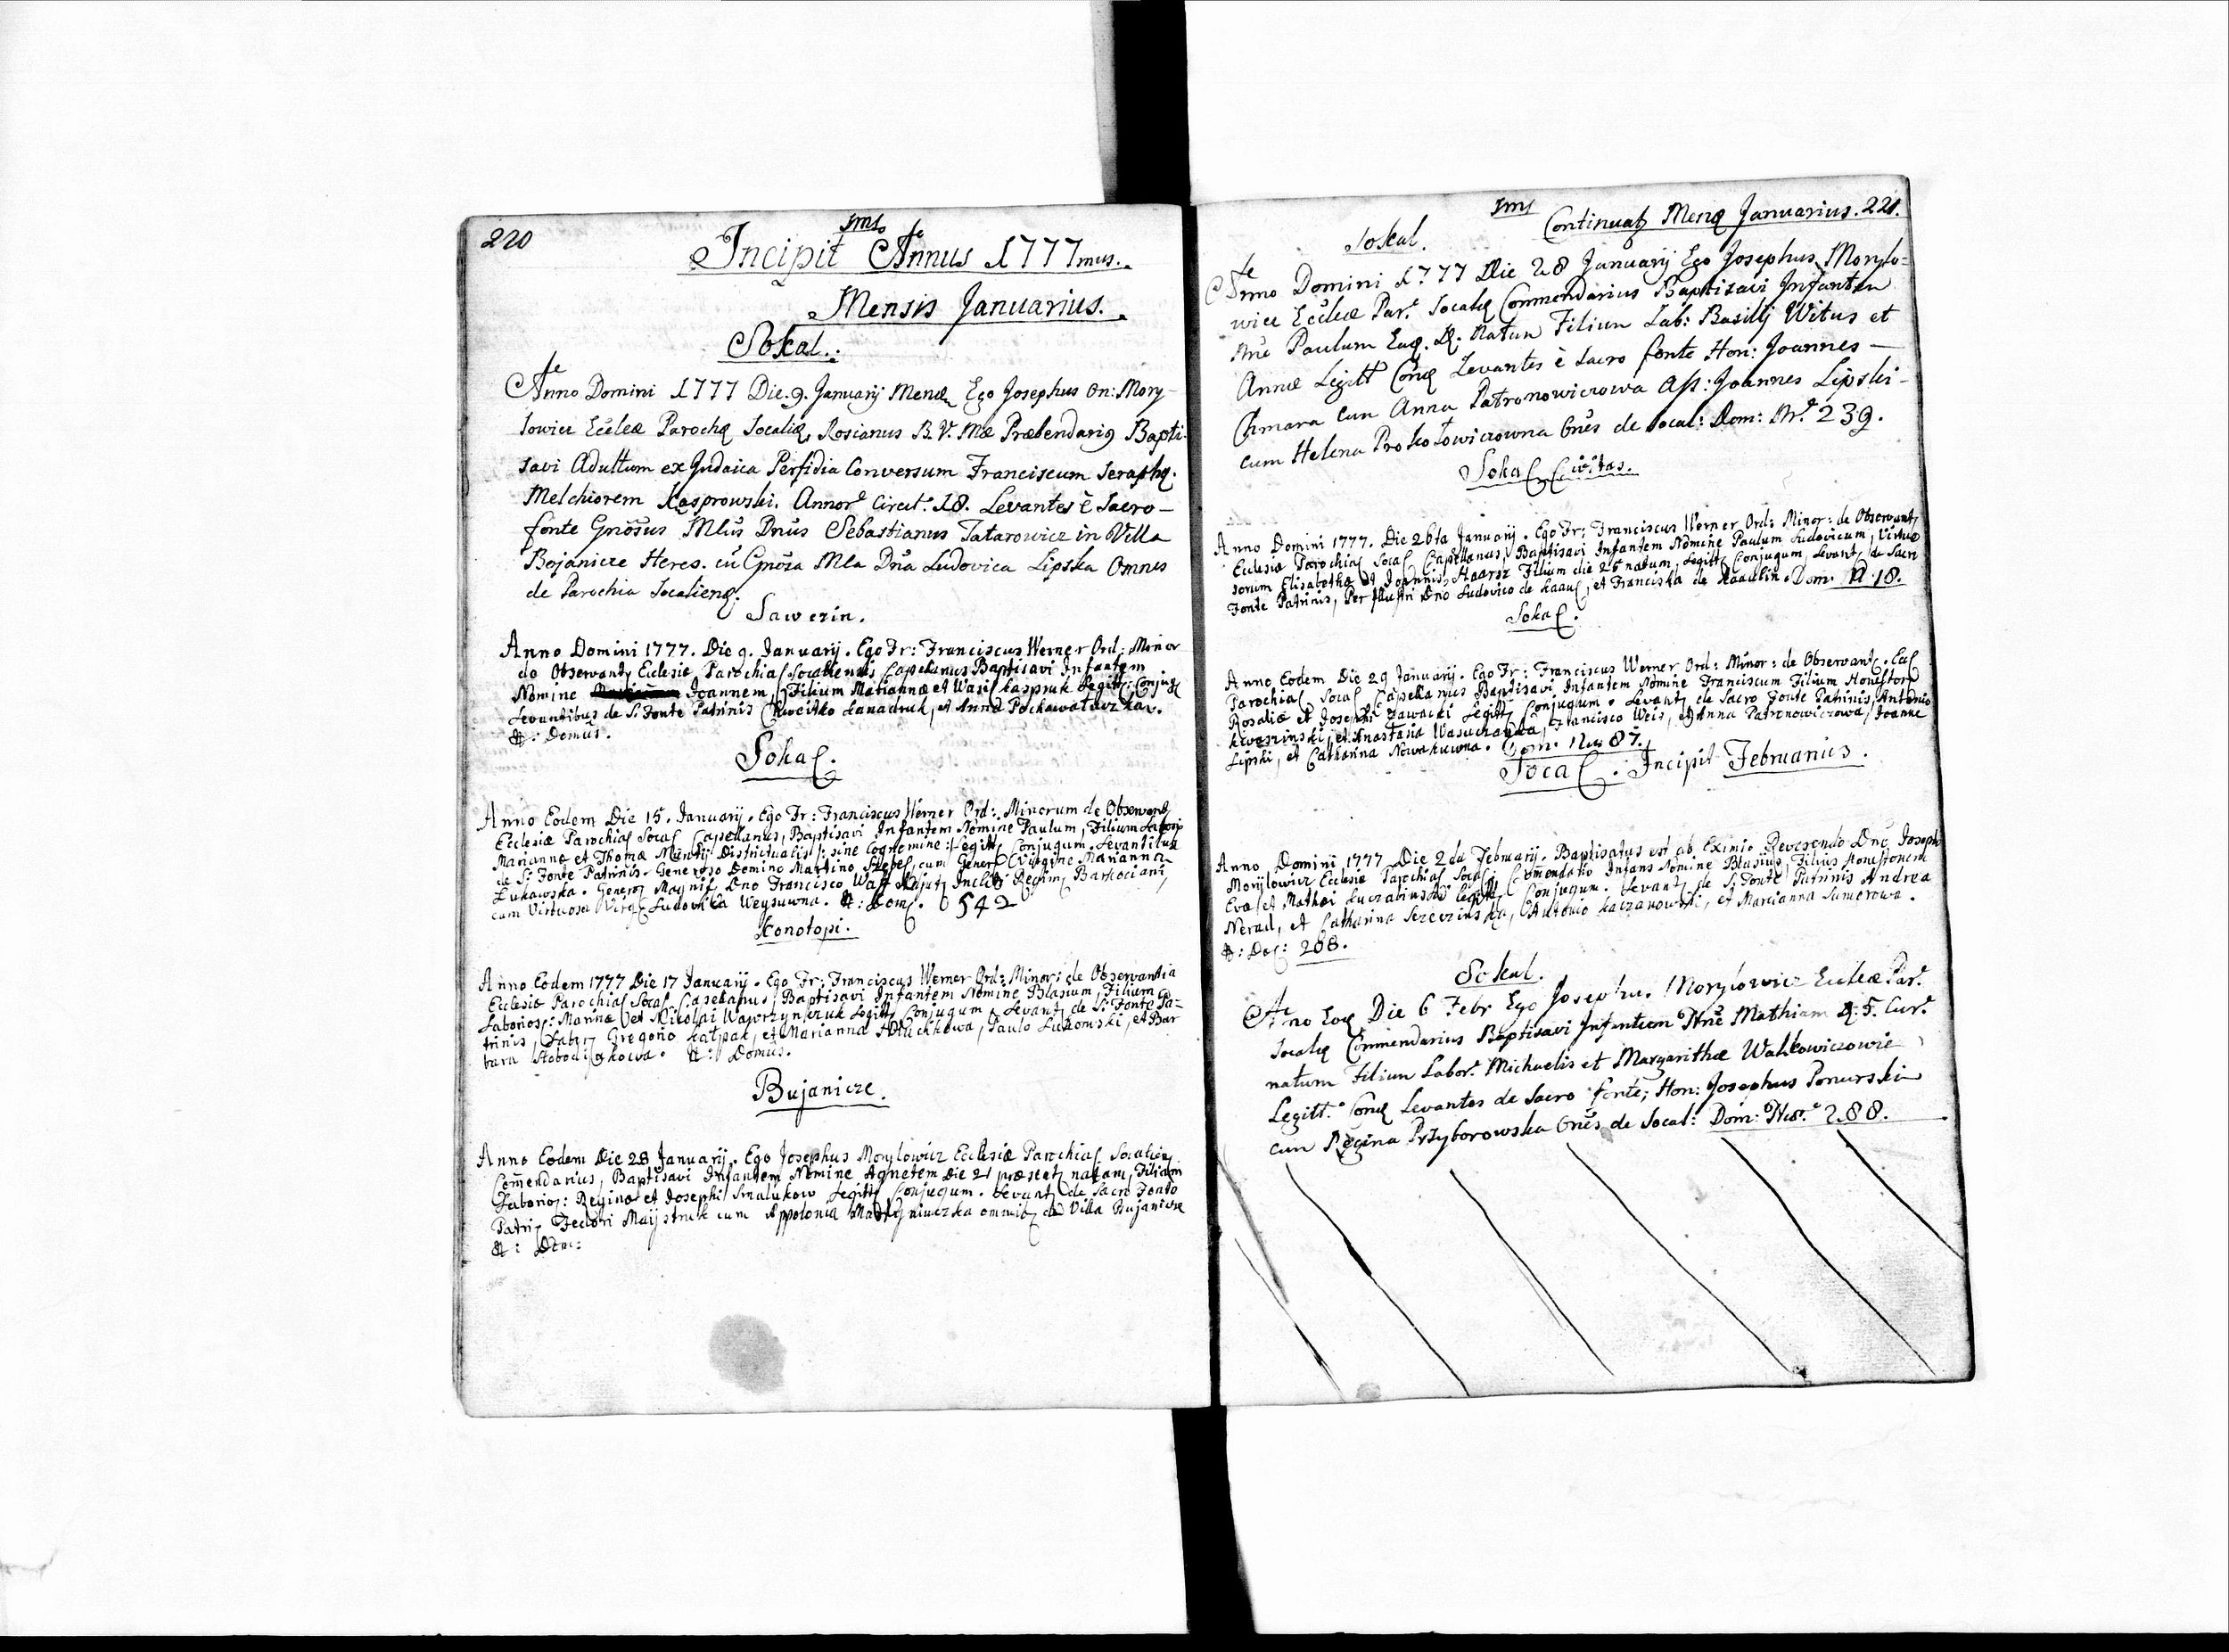 220
Incipit Annus 1777mus.
Mensis Januarius.
Sokal.
Anno Domini 1777 Die 9. Januarij Ego Josephus On: Mory-
lowicz Eccleæ Socaliẽ Rosianus B. V. Mæ Præbendari9 Bapti-
savi Adultum ex Judaica Perfidia Conversum Franciscum Seraph:
Melchiorem Kasprowski. Annor. Circit. 18. Levantes è Sacro-
fonte Gnõsus Mlus Dnus Sebastianus Tatarowicz in Villa
Bojanicze Heres. cũ Gnõsa Mla Dña Ludovica Lipska Omnes
de Parochia Socalieng.
Sawczin.
Anno Domini 1777. Die 9. Januarij. Ego Fr: Franciscus Werner Ord: Minor
de Observant Eclesiæ Parochial Socaliensis Capellanus Baptisavi Infantem
Nomine Joannem, Filium Mariannæ et Wasil Kaspruk Legitt: Conjug
Levantibus de S. Fonte Patrinis Lanadruk, et Anna
N: Domus.
Sokal.
Anno Eodem Die 15. Januarij. Ego Fr: Franciscus Werner Ord: Minorum de Observant
Ecclesiæ Parochial Socal Capellanus, Baptisavi Infantem Nomine Paulum, Filium
Mariannæ et Thomæ Districtualis /: sine Cognomine :/ Legitt Conjugum. Levantibus
de S. Fonte Patrinis. Generoso Domino Martino cum Gener Virgine Marianna
Łukawska. Generos Magnif. Dno Francisco Inclit Regim
cum Virtuosa Virg Ludovica Weysuwna. N: Dom. 542
Konotopi.
Anno Eodem 1777 Die 17 Januarij. Ego Fr: Franciscus Werner Ord: Minor: de Observantia
Ecclesiæ Parochial Socal Capellanus, Baptisavi Infantem Nomine Blasium, Filium
Laborios: Marinæ et Nikolai Wawrzynczuk Legitt Conjugum. Levant de S. Fonte Pa-
trinis, Gregorio Kałpak, et Marianna Paulo et Bar
bara N: Domus.
Bujanicze.
Anno Eodem Die 28 Januarij. Ego Josephus Morylowicz Ecclesiæ Parochial Socaliens
Comendarius, Baptisavi Infantem Nomine Agnetem Die 21 præsent natam, Filiam
Laborios: Reginæ et Josephi Smalukow Legitt Conjugum. Levant de Sacro Fonte
Patri Fedori Maijstruk cum Appolonia omnib de Villa Bujanicze
N: Dom:
Continuat Mens Januarius. 221.
Sokal.
Anno Domini 1777 Die 28 Januarij Ego Josephus Morylo-
wicz Eccleæ Par. Socaliẽ Commendarius Baptisavi Infantem
Nnẽ Paulum Natum Filium Lab: Basilij Witus et
Annæ Legitt Levantes è Sacro fonte Hon: Joannes -
Chmara cum Anna Patronowiczowa Ass: Joannes Lipski -
cum Helena Prokołowiczowna Onẽs de Socal: Dom: Nr. 239.
Sokal Civitas.
Anno Domini 1777. Die 26ta Januarij. Ego Fr: Franciscus Werner Ord: Minor: de Observant
Eclesiæ Parochial Socal Capellanus, Baptisavi Infantem Nomine Paulum Ludovicum, Virtuo
sorum Elisabethæ et Joannis Haarsz Filium die 25 natum, Legitt Conjugum, Levant de Sacro
Fonte Patrinis, Per Illustri Dno Ludovico de et Franciska de Dom. N. 18.
Sokal.
Anno Eodem Die 29 Januarij. Ego Fr: Franciscus Werner Ord: Minor: de Observant. Ecl
Parochial Socal Capellanus Baptisavi Infantem Nomine Franciscum Filium Honestor
Rosaliæ et Josephi Zawacki Legitt Conjugum. Levant de Sacro Fonte Patrinis, Antonio
et Anastasia Francisco Weis, et Anna Patronowiczowa, Joanne
Lipski, et Catharina Nowakuwna. Dom. Nus 87.
Socal. Incipit Februarius.
Anno Domini 1777 Die 2da Februarij. Baptisatus est ab Eximio Reverendo Dno Joseph
Morylowicz Ecclesiæ Parochial Socal Infans Nomine Blasius, Filius Honestorum
Evæ et Mathæi Legitt Conjugum. Levant de S. Fonte Patrinis Andrea
Nerad, et Catharina Antonio Kaczanowski, et Marianna
N: Do: 268.
Sokal.
Anno Eod Die 6 Febr Ego Josephus Morylowicz Eccleæ Par.
Socaliẽ Commendarius Baptisavi Infantem Nnẽ Mathiam 5. Cur.
natum Filium Labor. Michaelis et Margarithæ Walkowiczowie
Legitt. Levantes de Sacro fonte; Hon: Josephus Ponurski
cum Regina Przyborowska Onẽs de Socal: Dom: Nr. 288.